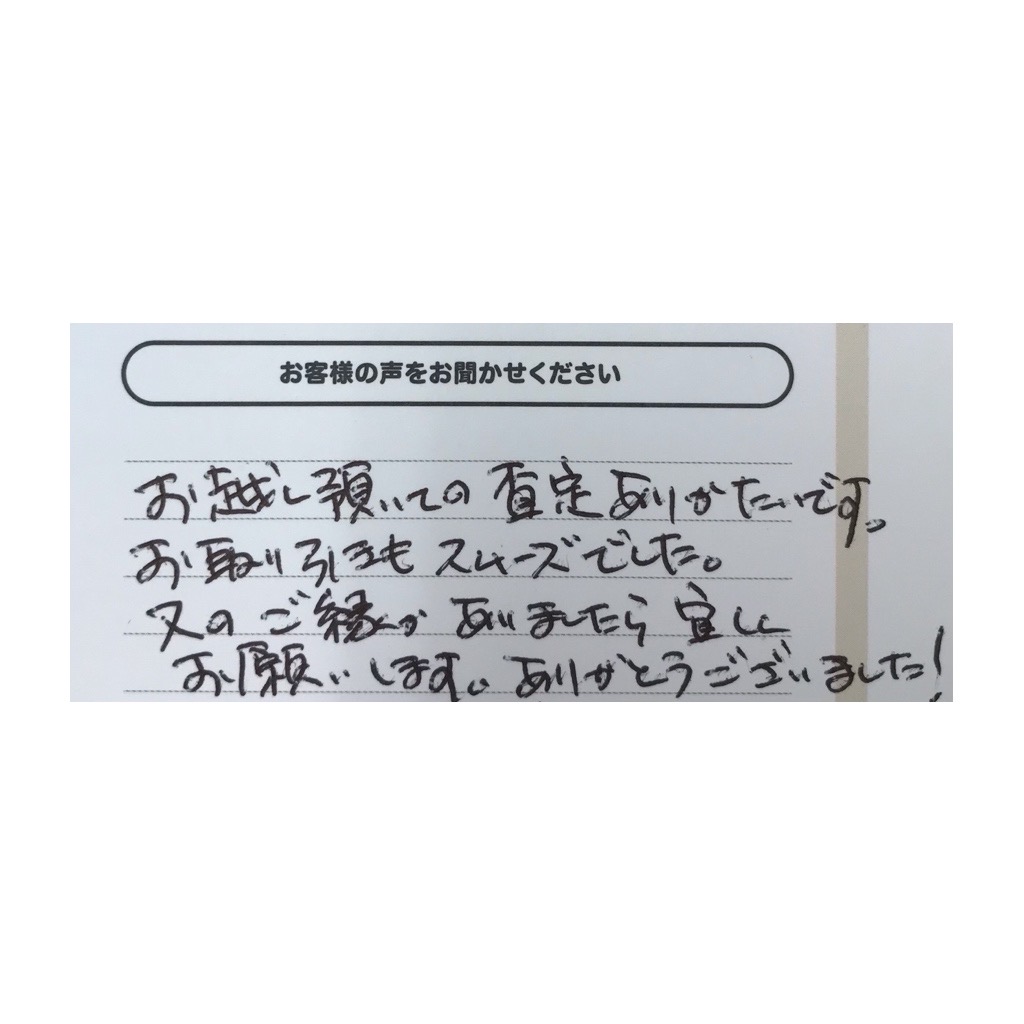 お客様の声をお聞かせください
お越し預いての査定ありがたいです。
お取り引きもスムーズでした。
又のご縁がありましたら宜しく
お願いします。ありがとうございました!